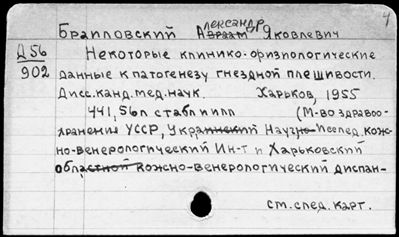 4
Браиловский Александр Яковлевич
Д56
902
Некоторые клинико-физиологические
данные к патогенезу гнездной плешивости.
Дисс. канд. мед. наук. Харьков, 1955
441, 56л стабл и илл (М-во здравоо-
хранения УССР, Украинский Научно-исслед. кож-
но-венерологический Ин-т и Харьковский
областной кожно-венерологический диспан-
см. след. карт.